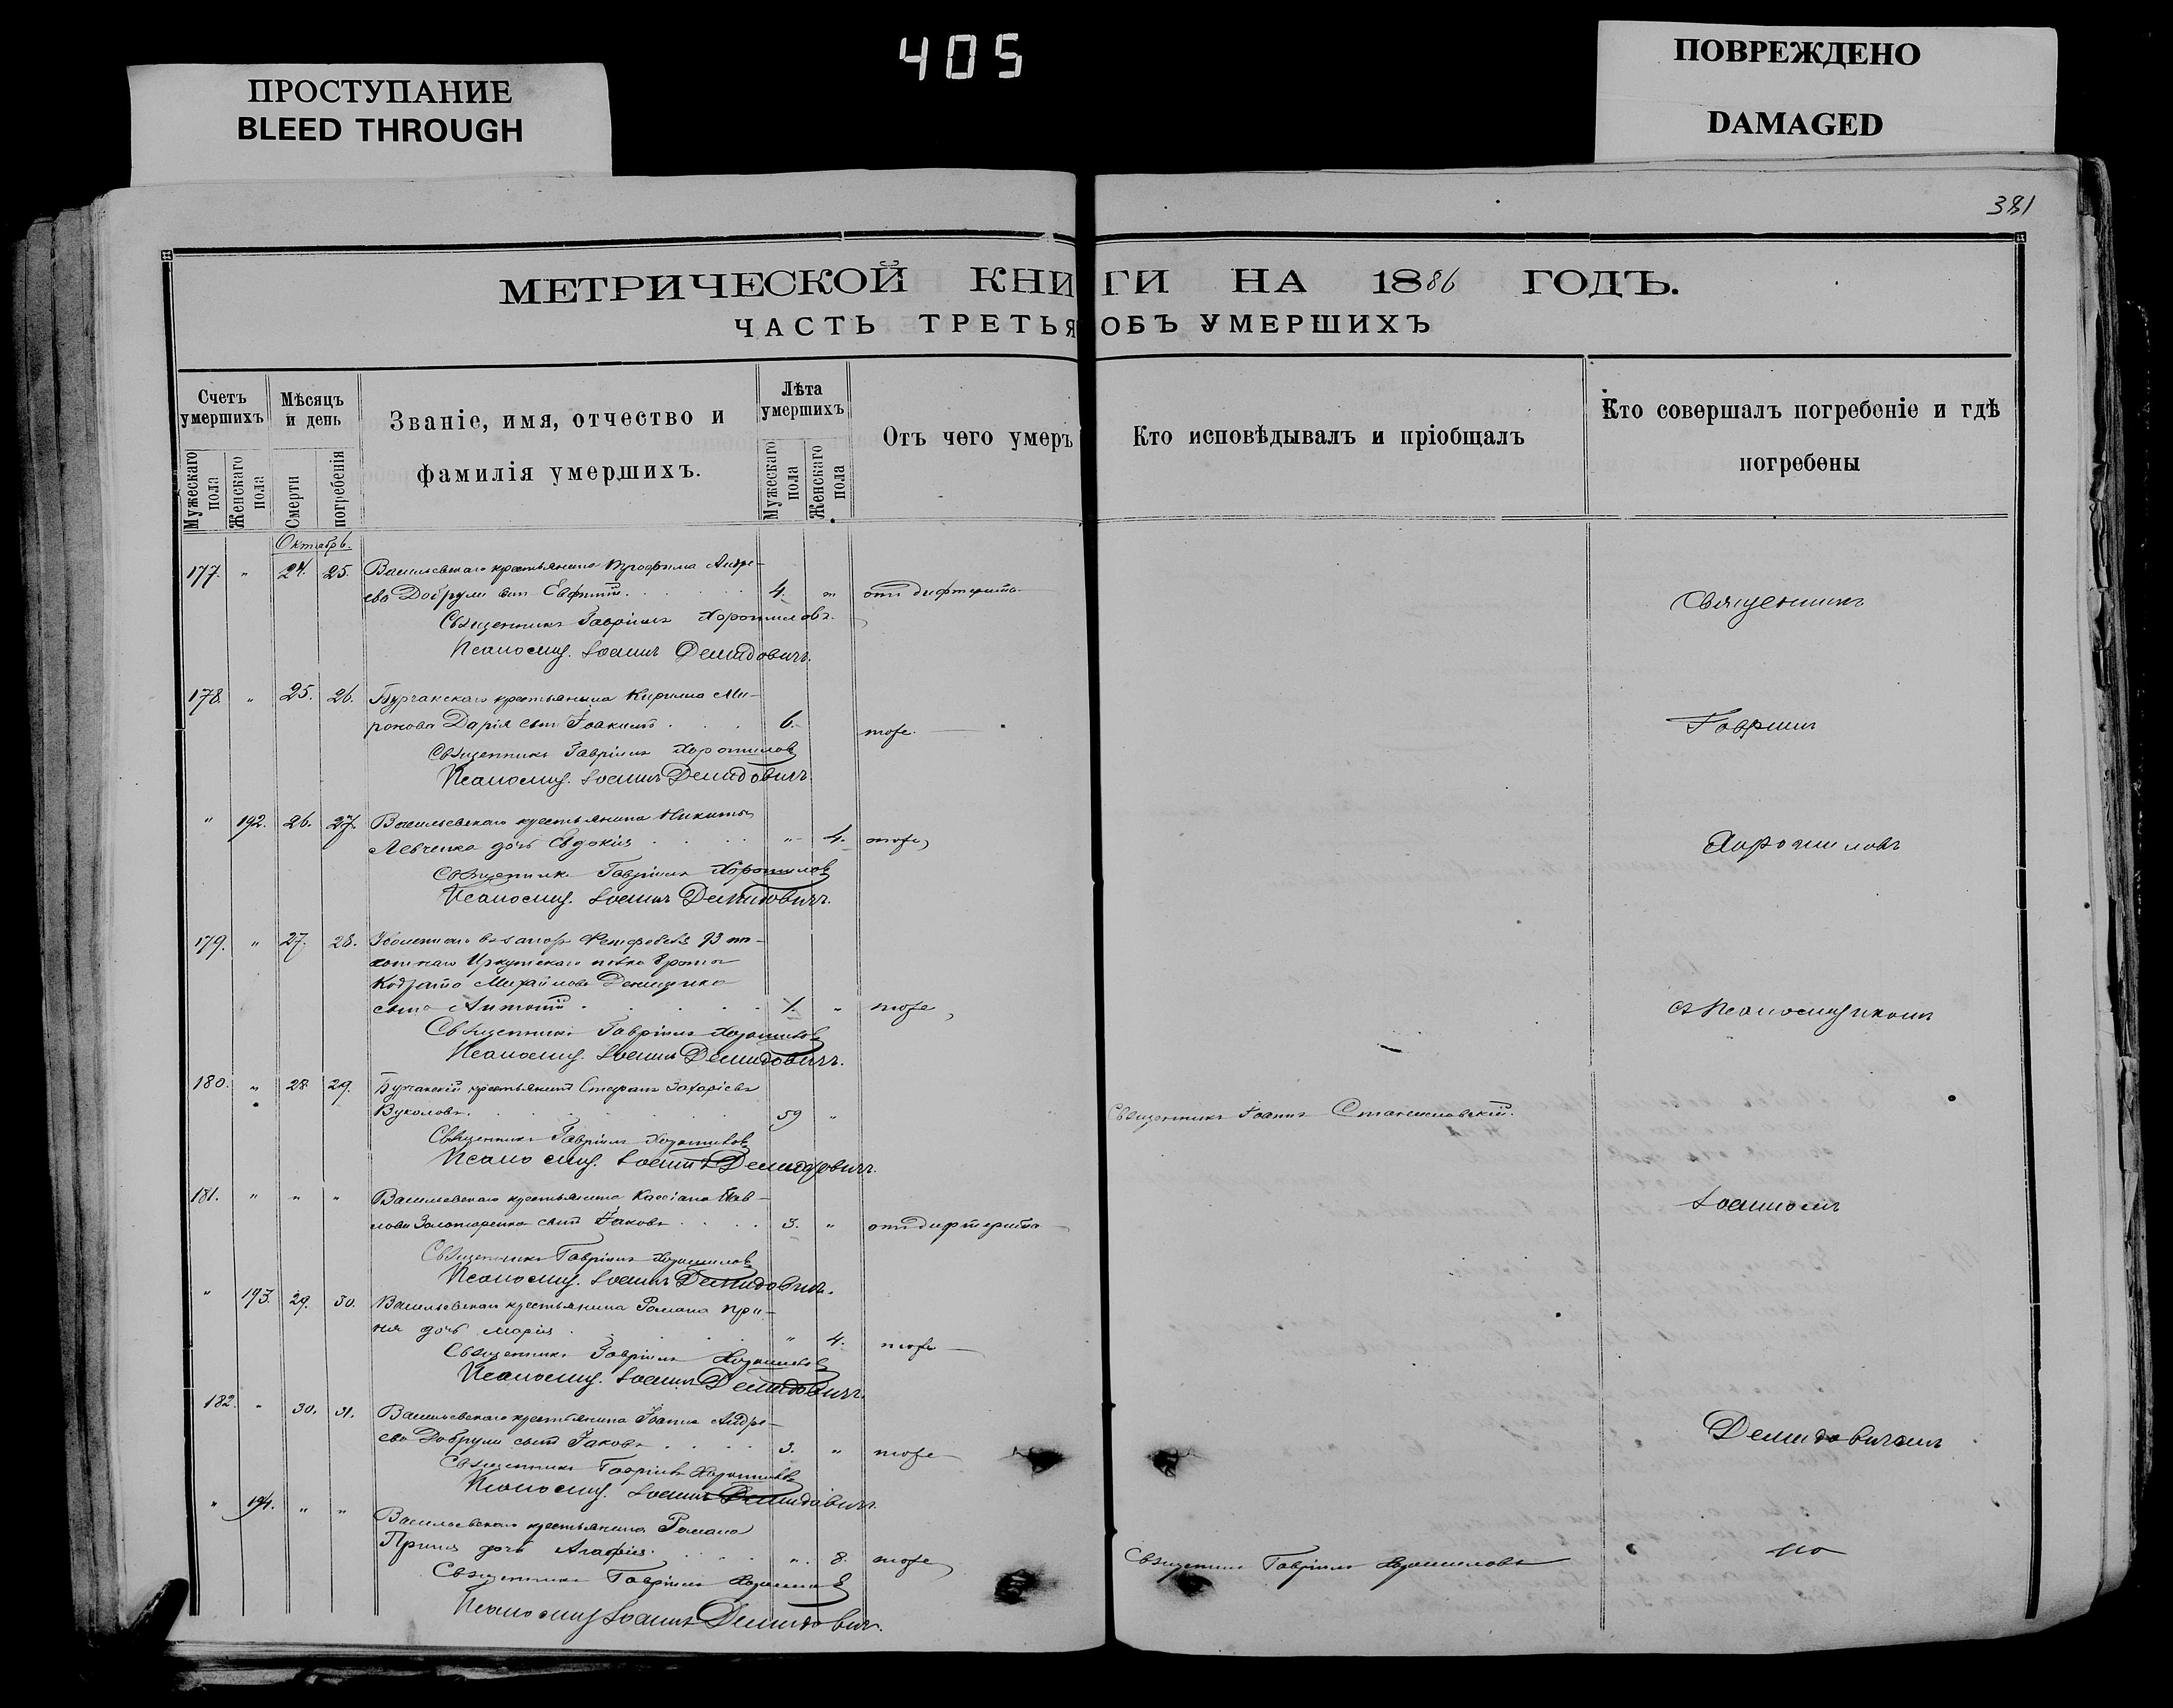 405
ПРОСТУПАНИЕ
BLEED THROUGH
ПОВРЕЖДЕНО
DAMAGED
381
МЕТРИЧЕСКОЙ КНИГИ НА 1886 ГОДЪ.
ЧАСТЬ ТРЕТЬЯ ОБЪ УМЕРШИХЪ
Счетъ умершихъ
Мужескаго пола
Женскаго пола
Мѣсяцъ и день
Смерти
погребенія
Званіе, имя, отчество и
фамилія умершихъ.
Лѣта умершихъ
Мужескаго пола
Женскаго пола
Отъ чего умеръ
Кто исповѣдывалъ и пріобщалъ
Кто совершалъ погребеніе и гдѣ
погребены
Октябрь.
177. " 24. 25. Васильевскаго крестьянина Андре-
ева Добрули сын Евфимій 4. " отъ дифтерита
Священникъ Гавріилъ Хорошиловъ.
Псаломщ. Іоаннъ Демидовичъ.
Священникъ
178. " 25. 26. Бурчакскаго крестьянина Кирилла Ми-
ронова сынъ Іоакимъ 6. тоже
Священникъ Гавріилъ Хорошилов
Псаломщ. Іоаннъ Демидовичъ.
Гавріилъ
" 192. 26. 27. Васильевскаго крестьянина Никиты
Левченка дочь Евдокія " 4. тоже
Священникъ Гавріилъ Хорошилов
Псаломщ. Іоаннъ Демидовичъ.
Хорошиловъ
179. " 27. 28. 93 пѣ-
хотнаго Иркутскаго полка 8 роты
Кодрата Михайлова
сынъ Антоній 1. " тоже
Священникъ Гавріилъ Хорошилов
Псаломщ. Іоаннъ Демидовичъ.
съ Псаломщикомъ
180. " 28. 29. Бурчакскій крестьянинъ Стефанъ Захаріевъ
Вуколовъ. 59 " Священникъ Іоаннъ Станиславскій.
Священникъ Гавріилъ Хорошилов
Псаломщ. Іоаннъ Демидовичъ.
181. " " " Васильевскаго крестьянина Кассіана Пав-
лова Золотаренка сынъ Іаковъ 3. " отъ дифтерита
Іоанномъ
Священникъ Гавріилъ Хорошилов
Псаломщ. Іоаннъ Демидовичъ.
" 193. 29. 30. Васильевскаго крестьянина Романа При-
ня дочь Марія " 4. тоже
Священникъ Гавріилъ Хорошилов
Псаломщ. Іоаннъ Демидовичъ.
182. " 30. 31. Васильевскаго крестьянина Іоанна Андре-
ева Добрули сынъ Іаковъ 3. " тоже
Демидовичемъ
Священникъ Гавріилъ Хорошилов
Псаломщ. Іоаннъ Демидовичъ.
" 194. " " Васильевскаго крестьянина Романа
Приня дочь Агафія. " 8. тоже Священникъ Гавріилъ Хорошиловъ
на
Священникъ Гавріилъ Хорошилов
Псаломщ Іоаннъ Демидович.